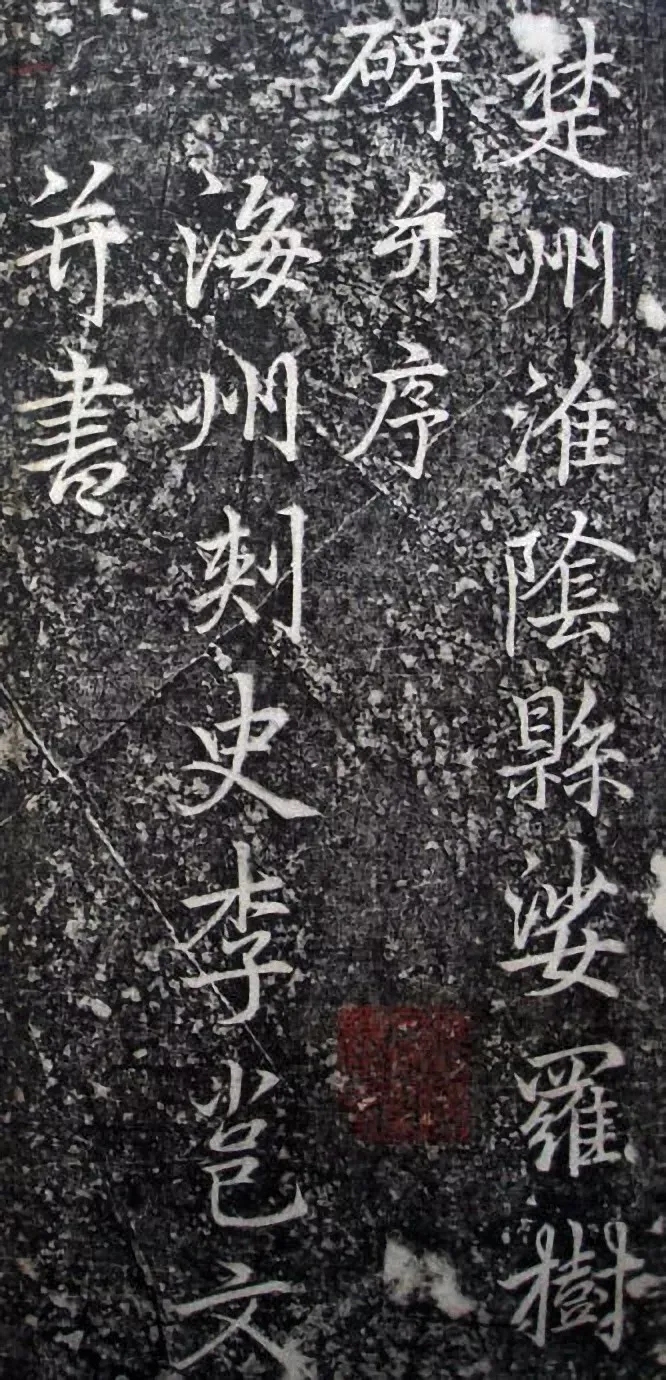 楚州淮陰縣娑羅樹
碑并序
海州刺史李邕文
并書